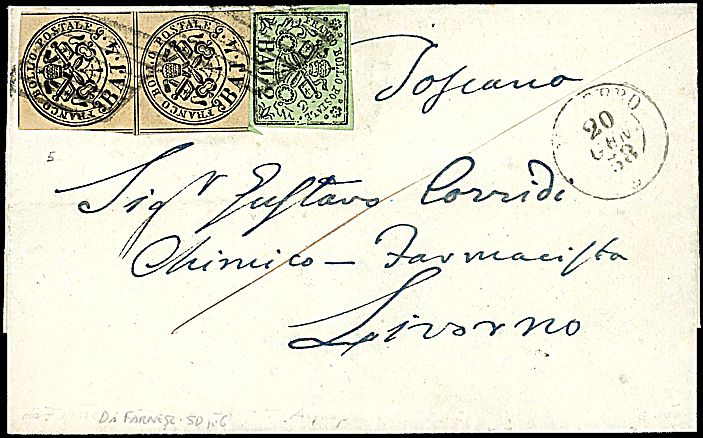 FRANCO BOLLO POSTALE
BAI. 4.
FRANCO BOLLO POSTALE
BAI. 4.
FRANCO BOLLO POSTALE
BAJ. 2
Toscana
20
GEN
58
5
Sigr Gustavo Corridi
Chimico - Farmacista
Livorno
DA FARNESE